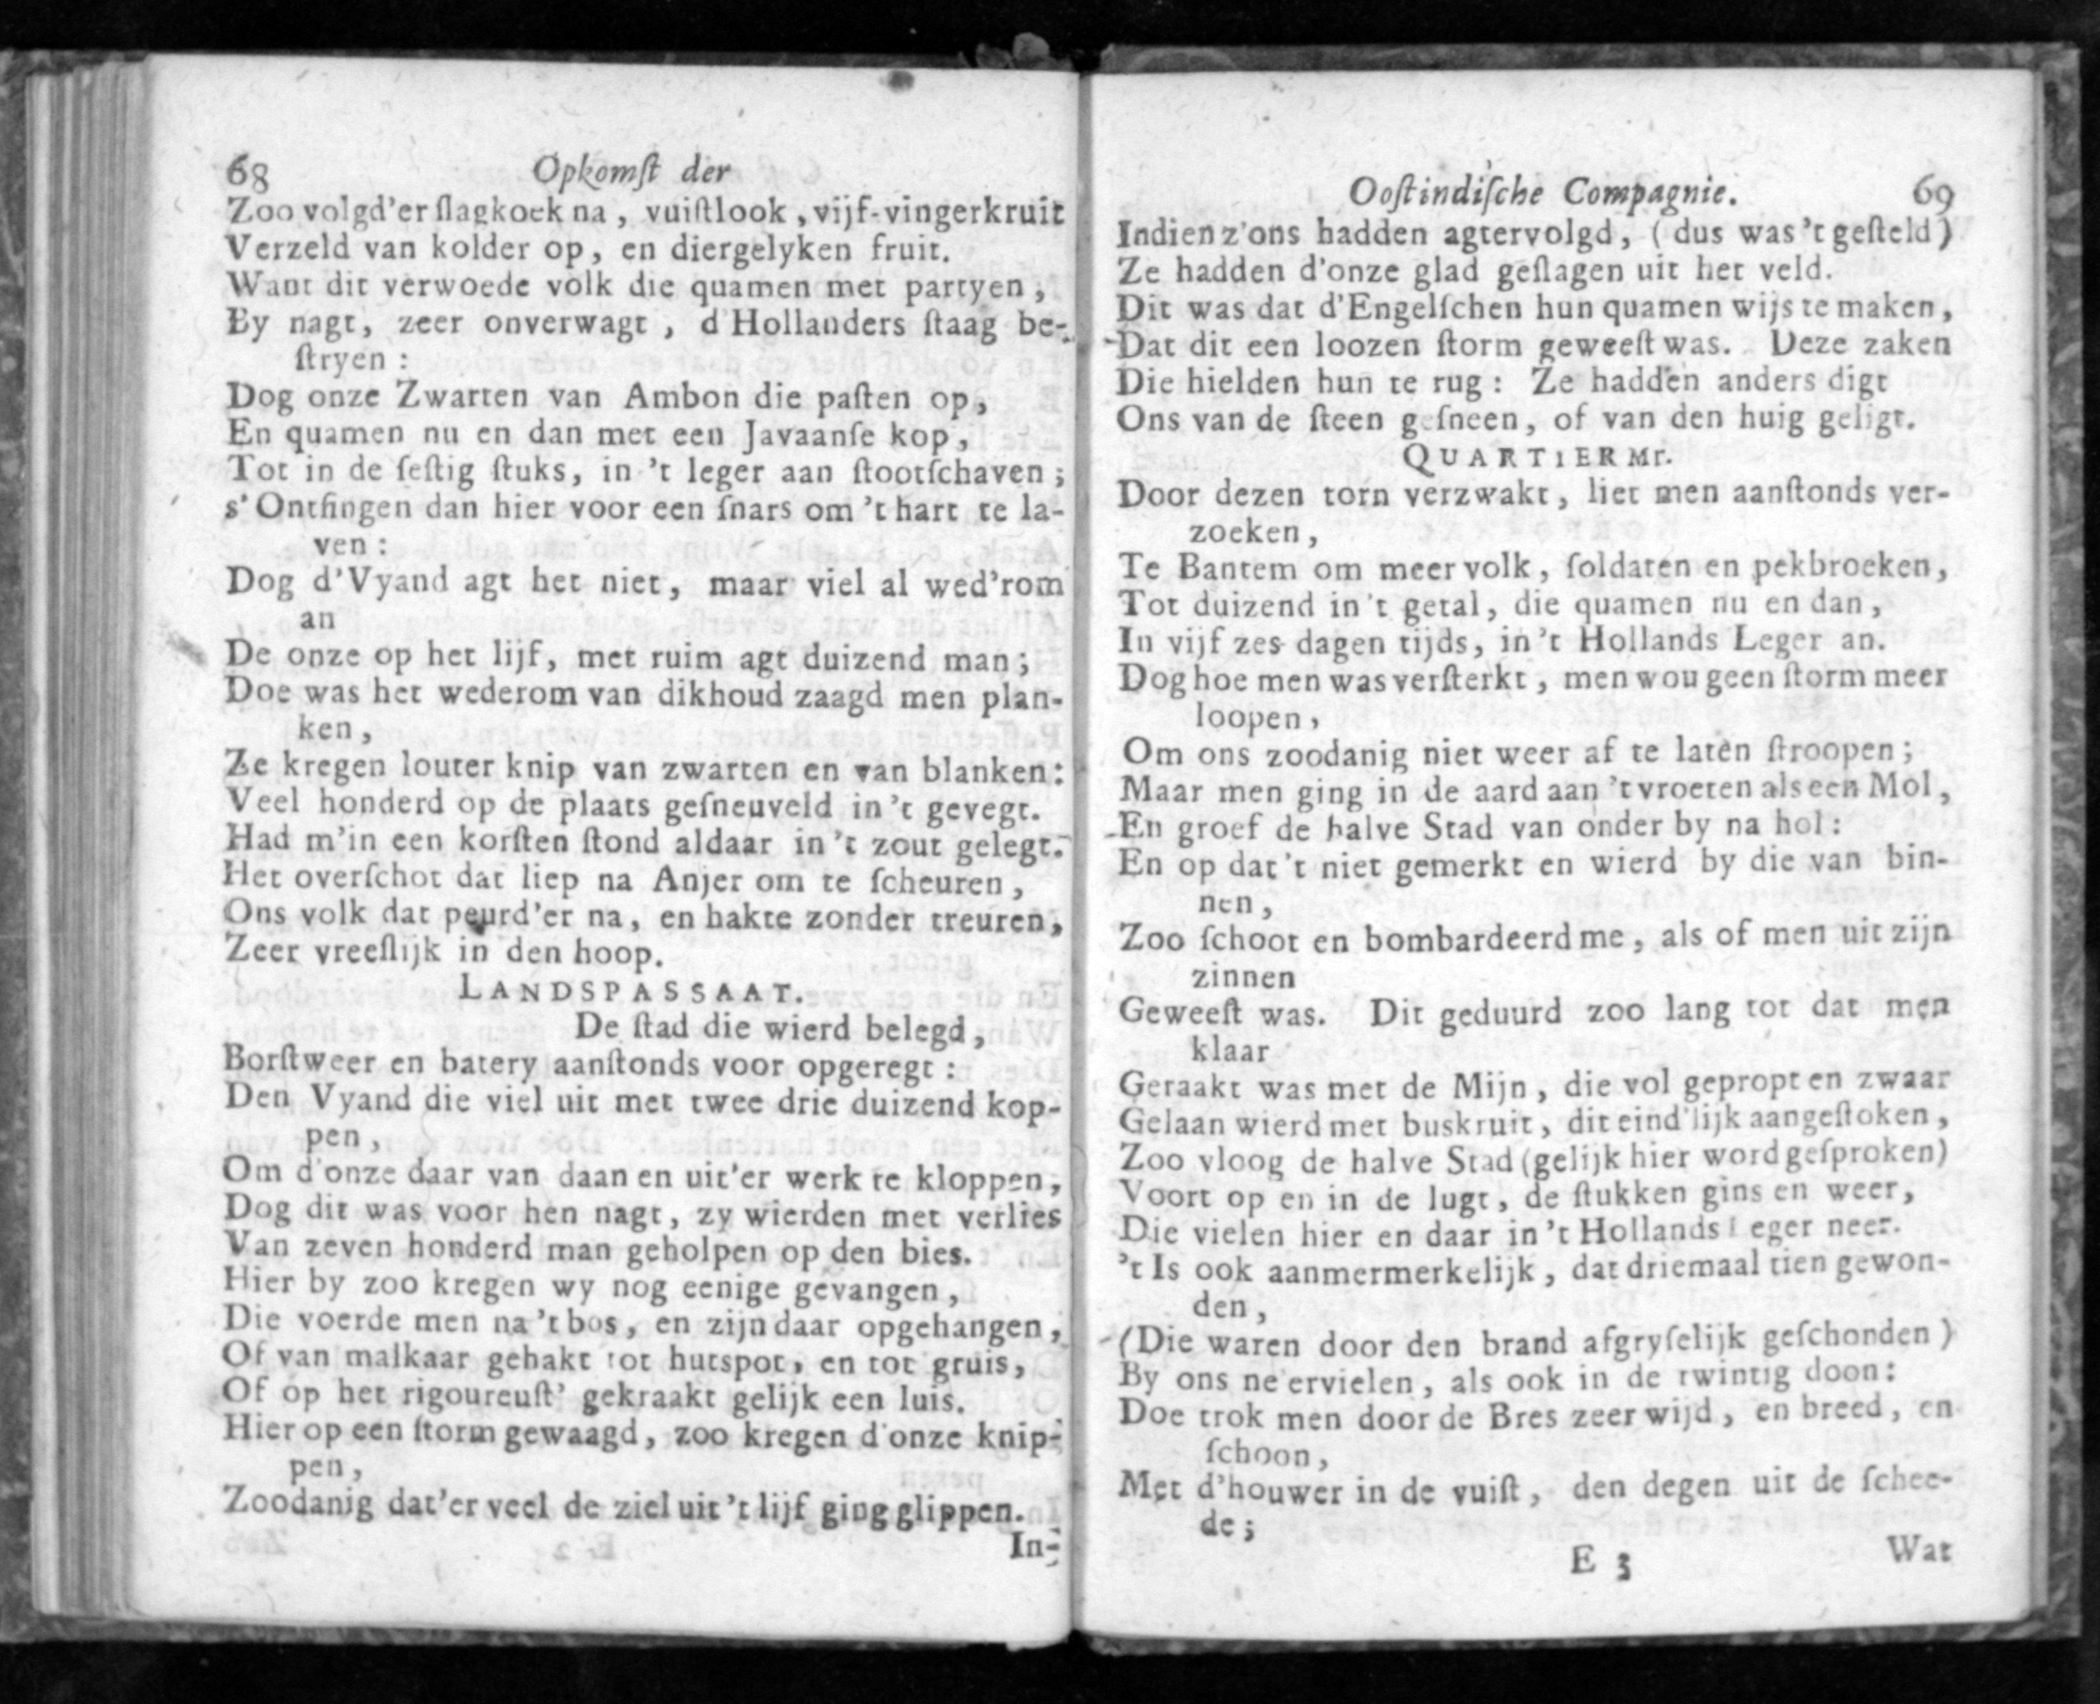 68 Opkomſt der
Zoo volgd'er ſlagkoek na, vuiſtlook, vijf-vingerkruit
Verzeld van kolder op, en diergelyken fruit.
Want dit verwoede volk die quamen met partyen,
By nagt, zeer onverwagt, d'Hollanders ſtaag be-
ſtryen:
Dog onze Zwarten van Ambon die paſten op,
En quamen nu en dan met een Javaanſe kop,
Tot in de ſeſtig ſtuks, in 't leger aan ſtootſchaven;
s'Ontfingen dan hier voor een ſnars om 't hart te la-
ven:
Dog d'Vyand agt het niet, maar viel al wed'rom
an
De onze op het lijf, met ruim agt duizend man;
Doe was het wederom van dikhoud zaagd men plan-
ken,
Ze kregen louter knip van zwarten en van blanken:
Veel honderd op de plaats geſneuveld in 't gevegt.
Had m'in een korſten ſtond aldaar in 't zout gelegt.
Het overſchot dat liep na Anjer om te ſcheuren,
Ons volk dat peurd'er na, en hakte zonder treuren,
Zeer vreeſlijk in den hoop.
LANDSPASSAAT.
De ſtad die wierd belegd,
Borſtweer en batery aanſtonds voor opgeregt:
Den Vyand die viel uit met twee drie duizend kop-
pen,
Om d'onze daar van daan en uit'er werk te kloppen,
Dog dit was voor hen nagt, zy wierden met verlies
Van zeven honderd man geholpen op den bies.
Hier by zoo kregen wy nog eenige gevangen,
Die voerde men na 't bos, en zijn daar opgehangen,
Of van malkaar gehakt tot hutspot, en tot gruis,
Of op het rigoureuſt' gekraakt gelijk een luis.
Hier op een ſtorm gewaagd, zoo kregen d'onze knip-
pen,
Zoodanig dat'er veel de ziel uit 't lijf ging glippen.
In-
Ooſtindiſche Compagnie. 69
Indien z'ons hadden agtervolgd, (dus was 't geſteld)
Ze hadden d'onze glad geſlagen uit het veld.
Dit was dat d'Engelſchen hun quamen wijs te maken,
Dat dit een loozen ſtorm geweeſt was. Deze zaken
Die hielden hun te rug: Ze hadden anders digt
Ons van de ſteen geſneen, of van den huig geligt.
QUARTIERMr.
Door dezen torn verzwakt, liet men aanſtonds ver-
zoeken,
Te Bantem om meer volk, ſoldaten en pekbroeken,
Tot duizend in 't getal, die quamen nu en dan,
In vijf zes dagen tijds, in 't Hollands Leger an.
Dog hoe men was verſterkt, men wou geen ſtorm meer
loopen,
Om ons zoodanig niet weer af te laten ſtroopen;
Maar men ging in de aard aan 't vroeten als een Mol,
En groef de halve Stad van onder by na hol:
En op dat 't niet gemerkt en wierd by die van bin-
nen,
Zoo ſchoot en bombardeerd me, als of men uit zijn
zinnen
Geweeſt was. Dit geduurd zoo lang tot dat men
klaar
Geraakt was met de Mijn, die vol gepropt en zwaar
Gelaan wierd met buskruit, dit eind'lijk aangeſtoken,
Zoo vloog de halve Stad (gelijk hier word geſproken)
Voort op en in de lugt, de ſtukken gins en weer,
Die vielen hier en daar in 't Hollands Leger neer.
't Is ook aanmermerkelijk, dat driemaal tien gewon-
den,
(Die waren door den brand afgryſelijk geſchonden)
By ons ne'ervielen, als ook in de twintig doon:
Doe trok men door de Bres zeer wijd, en breed, en
ſchoon,
Met d'houwer in de vuiſt, den degen uit de ſchee-
de;
E 3 Wat